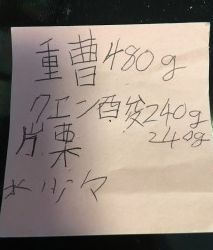 重曹480g
クエン酸240g
片栗 240g
水少々